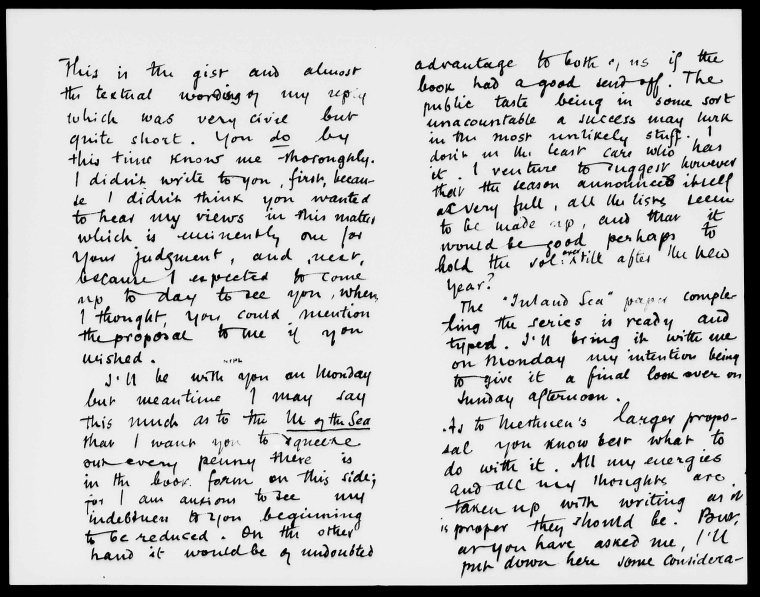 This is the gist and almost
the textual wording of my reply
which was very civil but
quite short. You do by
this time know me thoroughly.
I didn't write to you, first, becau-
se I didn't think you wanted
to hear my views in this matter
which is eminently one for
your judgment, and, next,
because I expected to come
up to day to see you, when,
I thought, you could mention
the proposal to me if you
wished.
I'll be with you on Monday
but meantime I may say
this much as to the M of the Sea
that I want you to squeeze
out every penny there is
in the book form on this side;
for I am anxious to see my
indebtness to you beginning
to be reduced. On the other
hand it would be of undoubted
advantage to both of us if the
book had a good send off. The
public taste being in some sort
unaccountable a success may lurk
in the most unlikely stuff. I
don't in the least care who has
it. I venture to suggest however
that the season announces itself
as very full, all the lists seem
to be made up, and that it
would be good perhaps to
hold the vol: over till after the New
Year?
The "Inland Sea" paper comple-
ting the series is ready and
typed. I'll bring it with me
on Monday my intention being
to give it a final look over on
Sunday afternoon.
As to Methuen's larger propo-
sal you know best what to
do with it. All my energies
and all my thoughts are
taken up with writing as it
is proper they should be. But,
as you have asked me, I'll
put down here some considera-